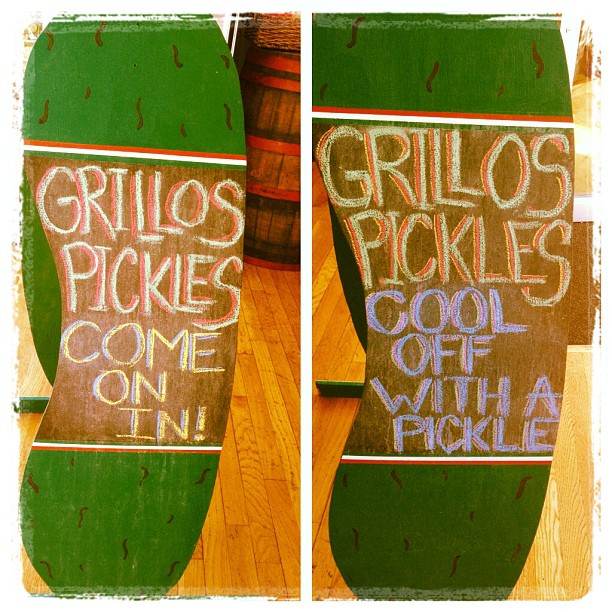 GRILLOS
PICKLES
COME
ON
IN!
GRILLOS
PICKLES
COOL
OFF
WITH A
PICKLE